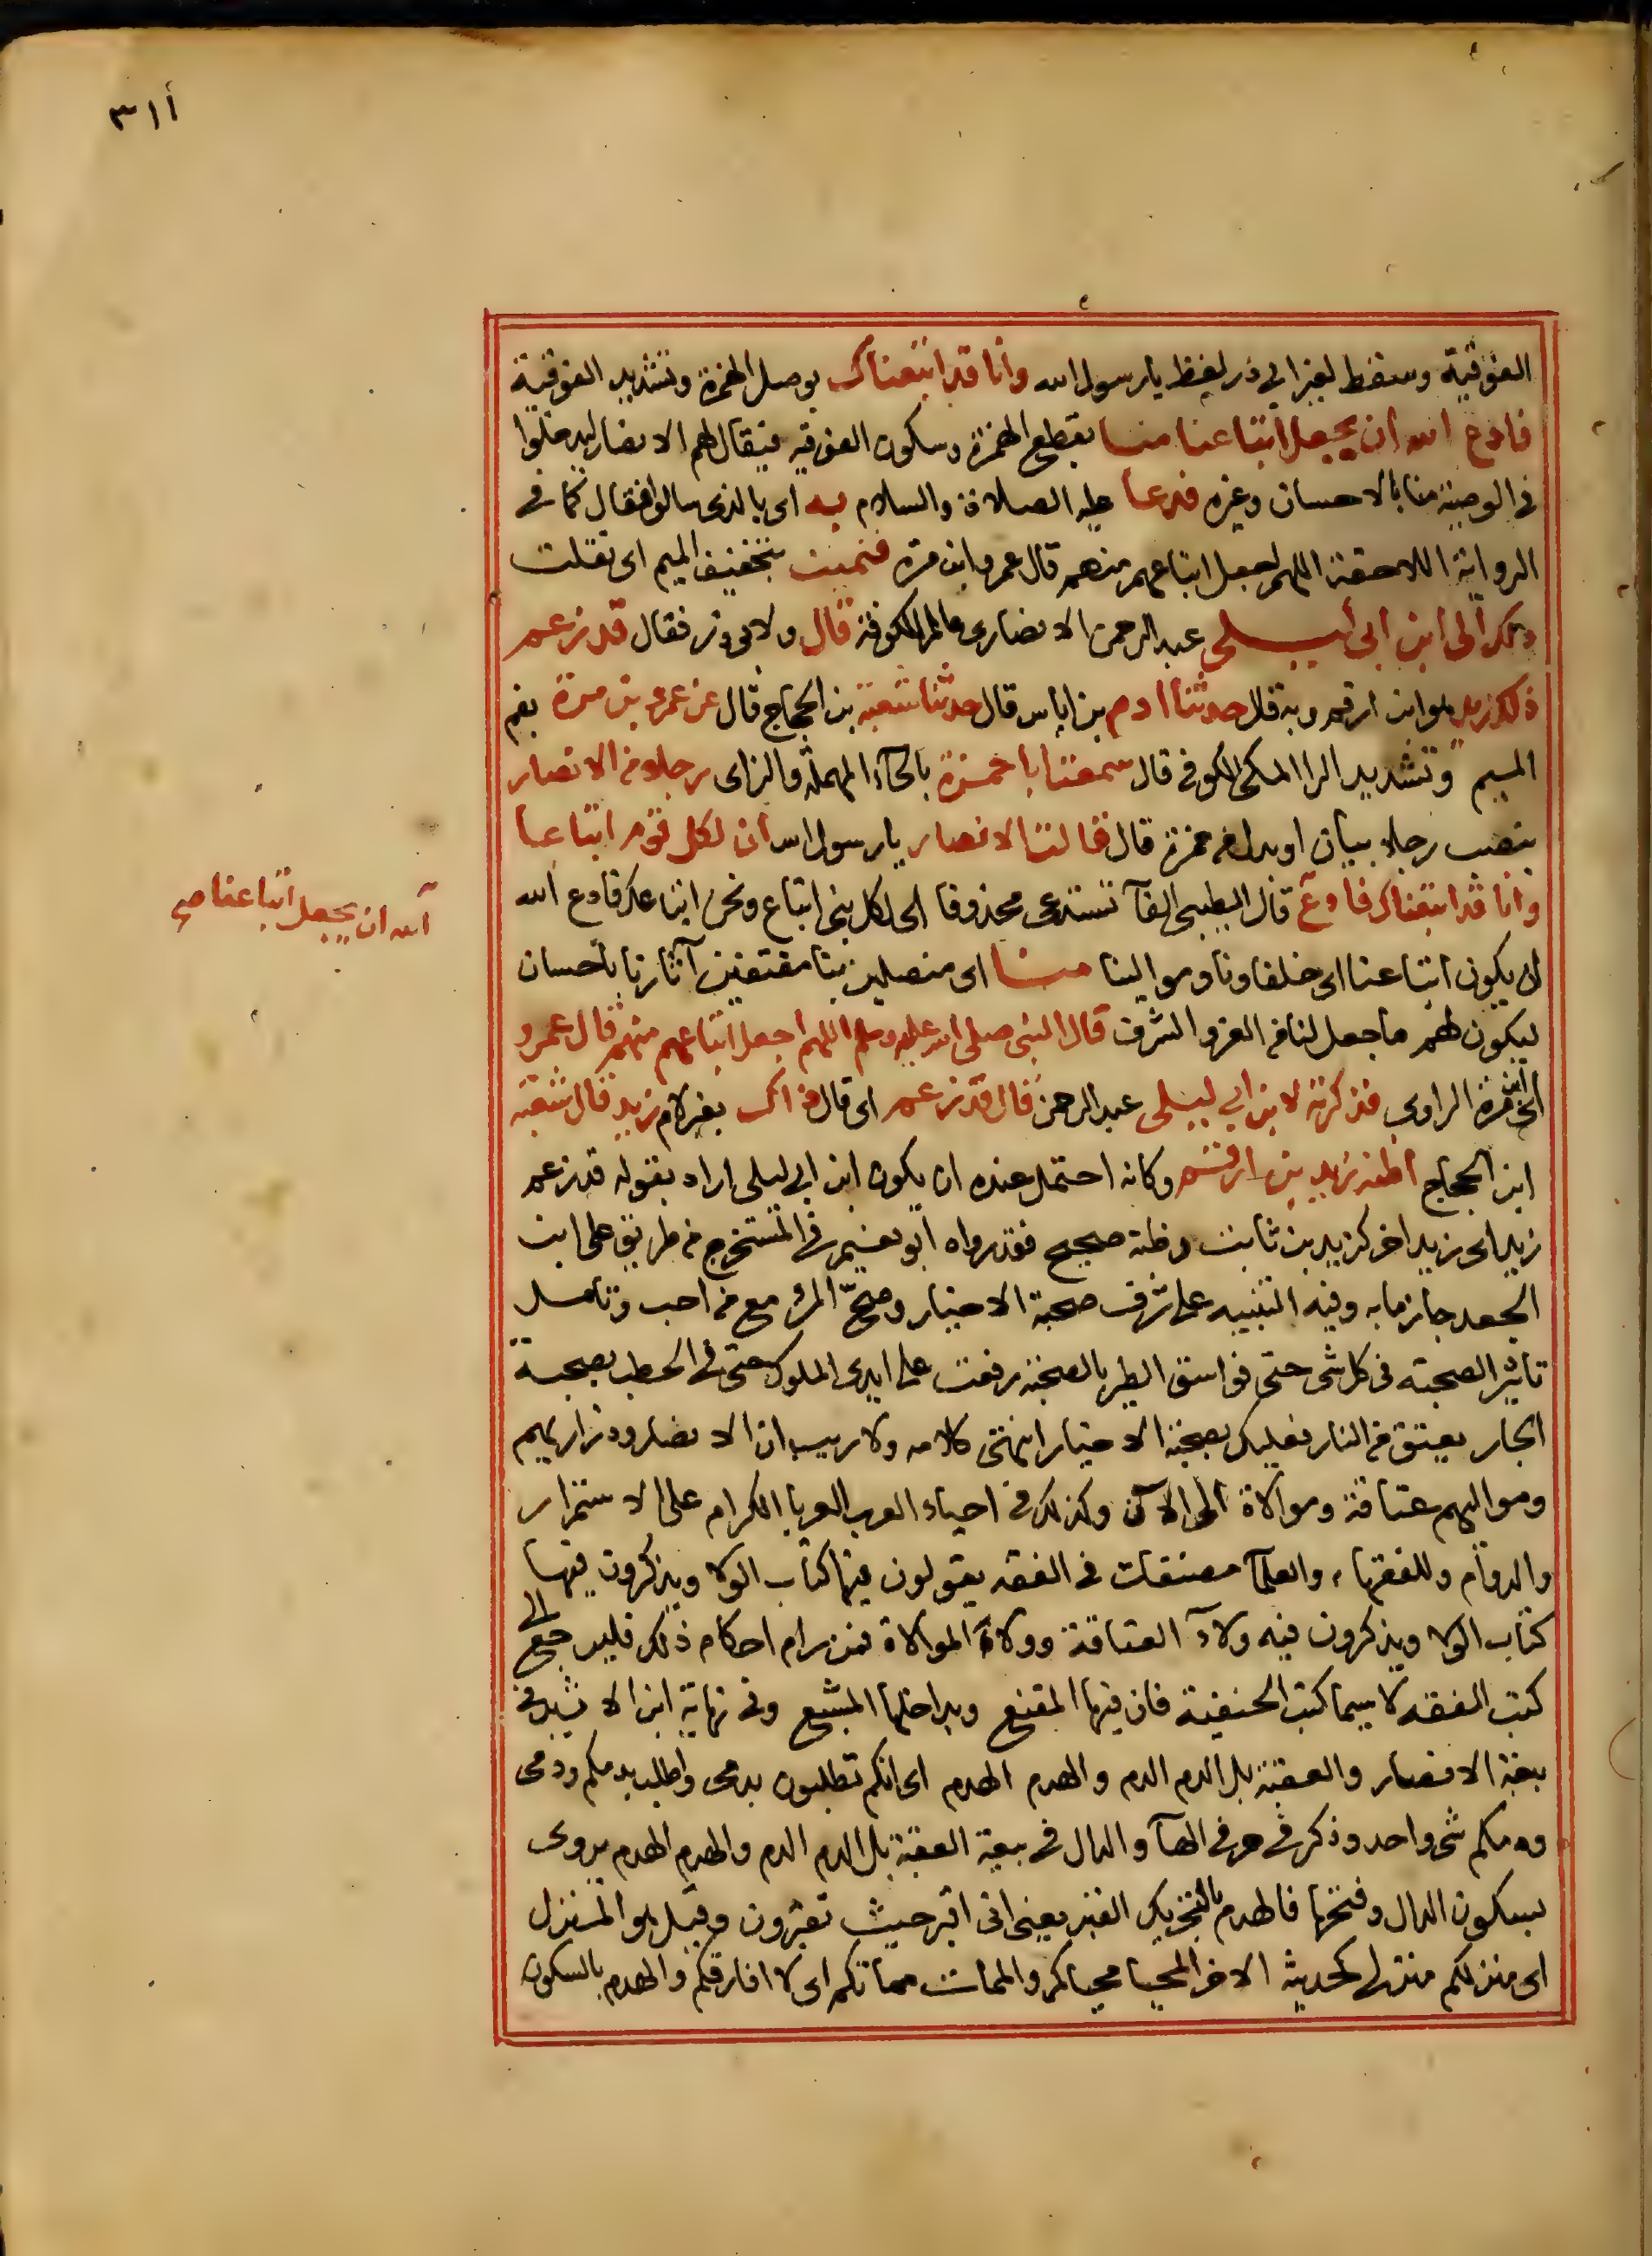 ٣١١
الفوقية وسقط لغير ابي ذر لفظ يا رسول الله وانا قد اتبعناك بوصل الهمزة وتشديد الفوقية
فادع الله ان يجعل اتباعنا منا بقطع الهمزة وسكون الفوقيه فيقال لهم الانصار ليدخلوا
في الوصية منا بالاحسان وغيره فدعا عليه الصلاة والسلام به اى بالذى سالوا فقال كما في
الرواية اللاحقة اللهم اجعل اتباعهم منهم قال عمرو ابن مرة فنميت بتخفيف الميم اى نقلت
ذلك الى ابن ابي ليلى عبد الرحمن الانصارى عالم الكوفة قال ولابى ذر فقال قد زعم
ذلك زيد هو ابن ارقم وبه قال حدثنا ادم بن اياس قال حدثنا شعبة بن الحجاج قال عن عمرو بن مرة بضم
الميم وتشديد الرا المكى الكوفي قال سمعت ابا حمزة بالحآء المهملة والزاى رجلا من الانصار
بنصب رجلا بيان او بدل من حمزة قال قالت الانصار يا رسول الله ان لكل قوم اتباعا
وانا قد اتبعناك فادع قال الطيبى الفآ تستدعى محذوفا اى لكل نبى اتباع ونحن اتباعك فادع الله
الله ان يجعل اتباعنا صح
ان يكون اتباعنا اى خلفاونا وموالينا منا اى متصلين بنا مقتفين آثارنا باحسان
ليكون لهم ما جعل لنا من العز والشرف قال النبى صلى الله عليه وسلم اللهم اجعل اتباعهم منهم قال عمرو
اى ابن مرة الراوى فذكرته لابن ابي ليلى عبد الرحمن قال قد زعم اى قال ذاك بغير لام زيد قال شعبة
ابن الحجاج اظنه زيد بن ارقم وكانه احتمل عنده ان يكون ابن ابي ليلى اراد بقوله قد زعم
زيد اى زيد اخر كزيد بن ثابت وظنه صحيح فقد رواه ابو نعيم في المستخرج من طريق على ابن
الجعد جازما به وفيه التنبيه على شرف صحبة الاخيار وصحّ المرء مع من احب وتامل
تاثير الصحبة في كل شى حتى فواسق الطير بالصحبة رفعت على ايدى الملوك حتى في الحطب بصحبة
النجار يعتق من النار فعليك بصحبة الاخيار انتهى كلامه ولا ريب ان الانصار وذراريهم
ومواليهم عتاقة وموالاة الى الآن وكذلك في احياء العرب العربا الكرام على الاستمرار
والدوام وللفقهاء والعلمآ مصنفات في الفقه يقولون فيها كتاب الولا ويذكرون فيها
كتاب الولا ويذكرون فيه ولاء العتاقة وولاء الموالاة فمن رام احكام ذلك فليرجع الى
كتب الفقه لا سيما كتب الحنفية فان فيها المقنع وبداخلها المشبع وفى نهاية ابن الاثير في
بيعة الانصار والعقبة بل الدم الدم والهدم الهدم اى انكم تطلبون بدمى واطلب بدمكم ودمى
ودمكم شى واحد وذكر في حرفي الهآ والدال في بيعة العقبة بل الدم الدم والهدم الهدم يروى
بسكون الدال وفتحها فالهدم بالتحريك القبر يعنى انى اقبر حيث تقبرون وقيل هو المنزل
اى منزلكم منزلى كحديثه الاخر المحيا محياكم والممات مماتكم اى لا افارقكم والهدم بالسكون